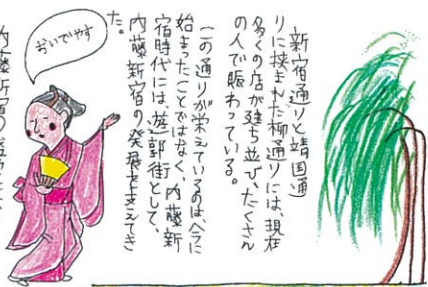 新宿通りと靖国通
りに挟まれた柳通りには、現在
多くの店が建ち並び、たくさん
の人で賑わっている。
この通りが栄えているのは、今に
始まったことではなく、内藤新
宿時代には、遊郭街として、
内藤新宿の発展を支えてき
た。
おいでやす